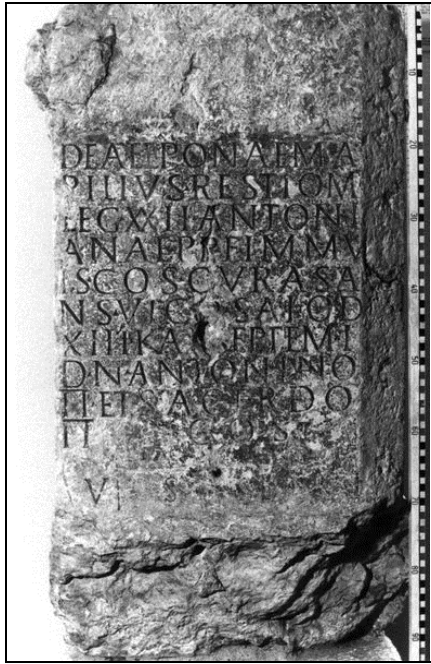 DEAEEPONAEMA
PILIVSRESTIOM
LEGXXIIANTONI
ANAEPPFIMMV
ISCOSCVRASA
NSVIC SALOD
XIIII KA EPTEM
DNANTONINO
II ET SACERDO
II COS
V S